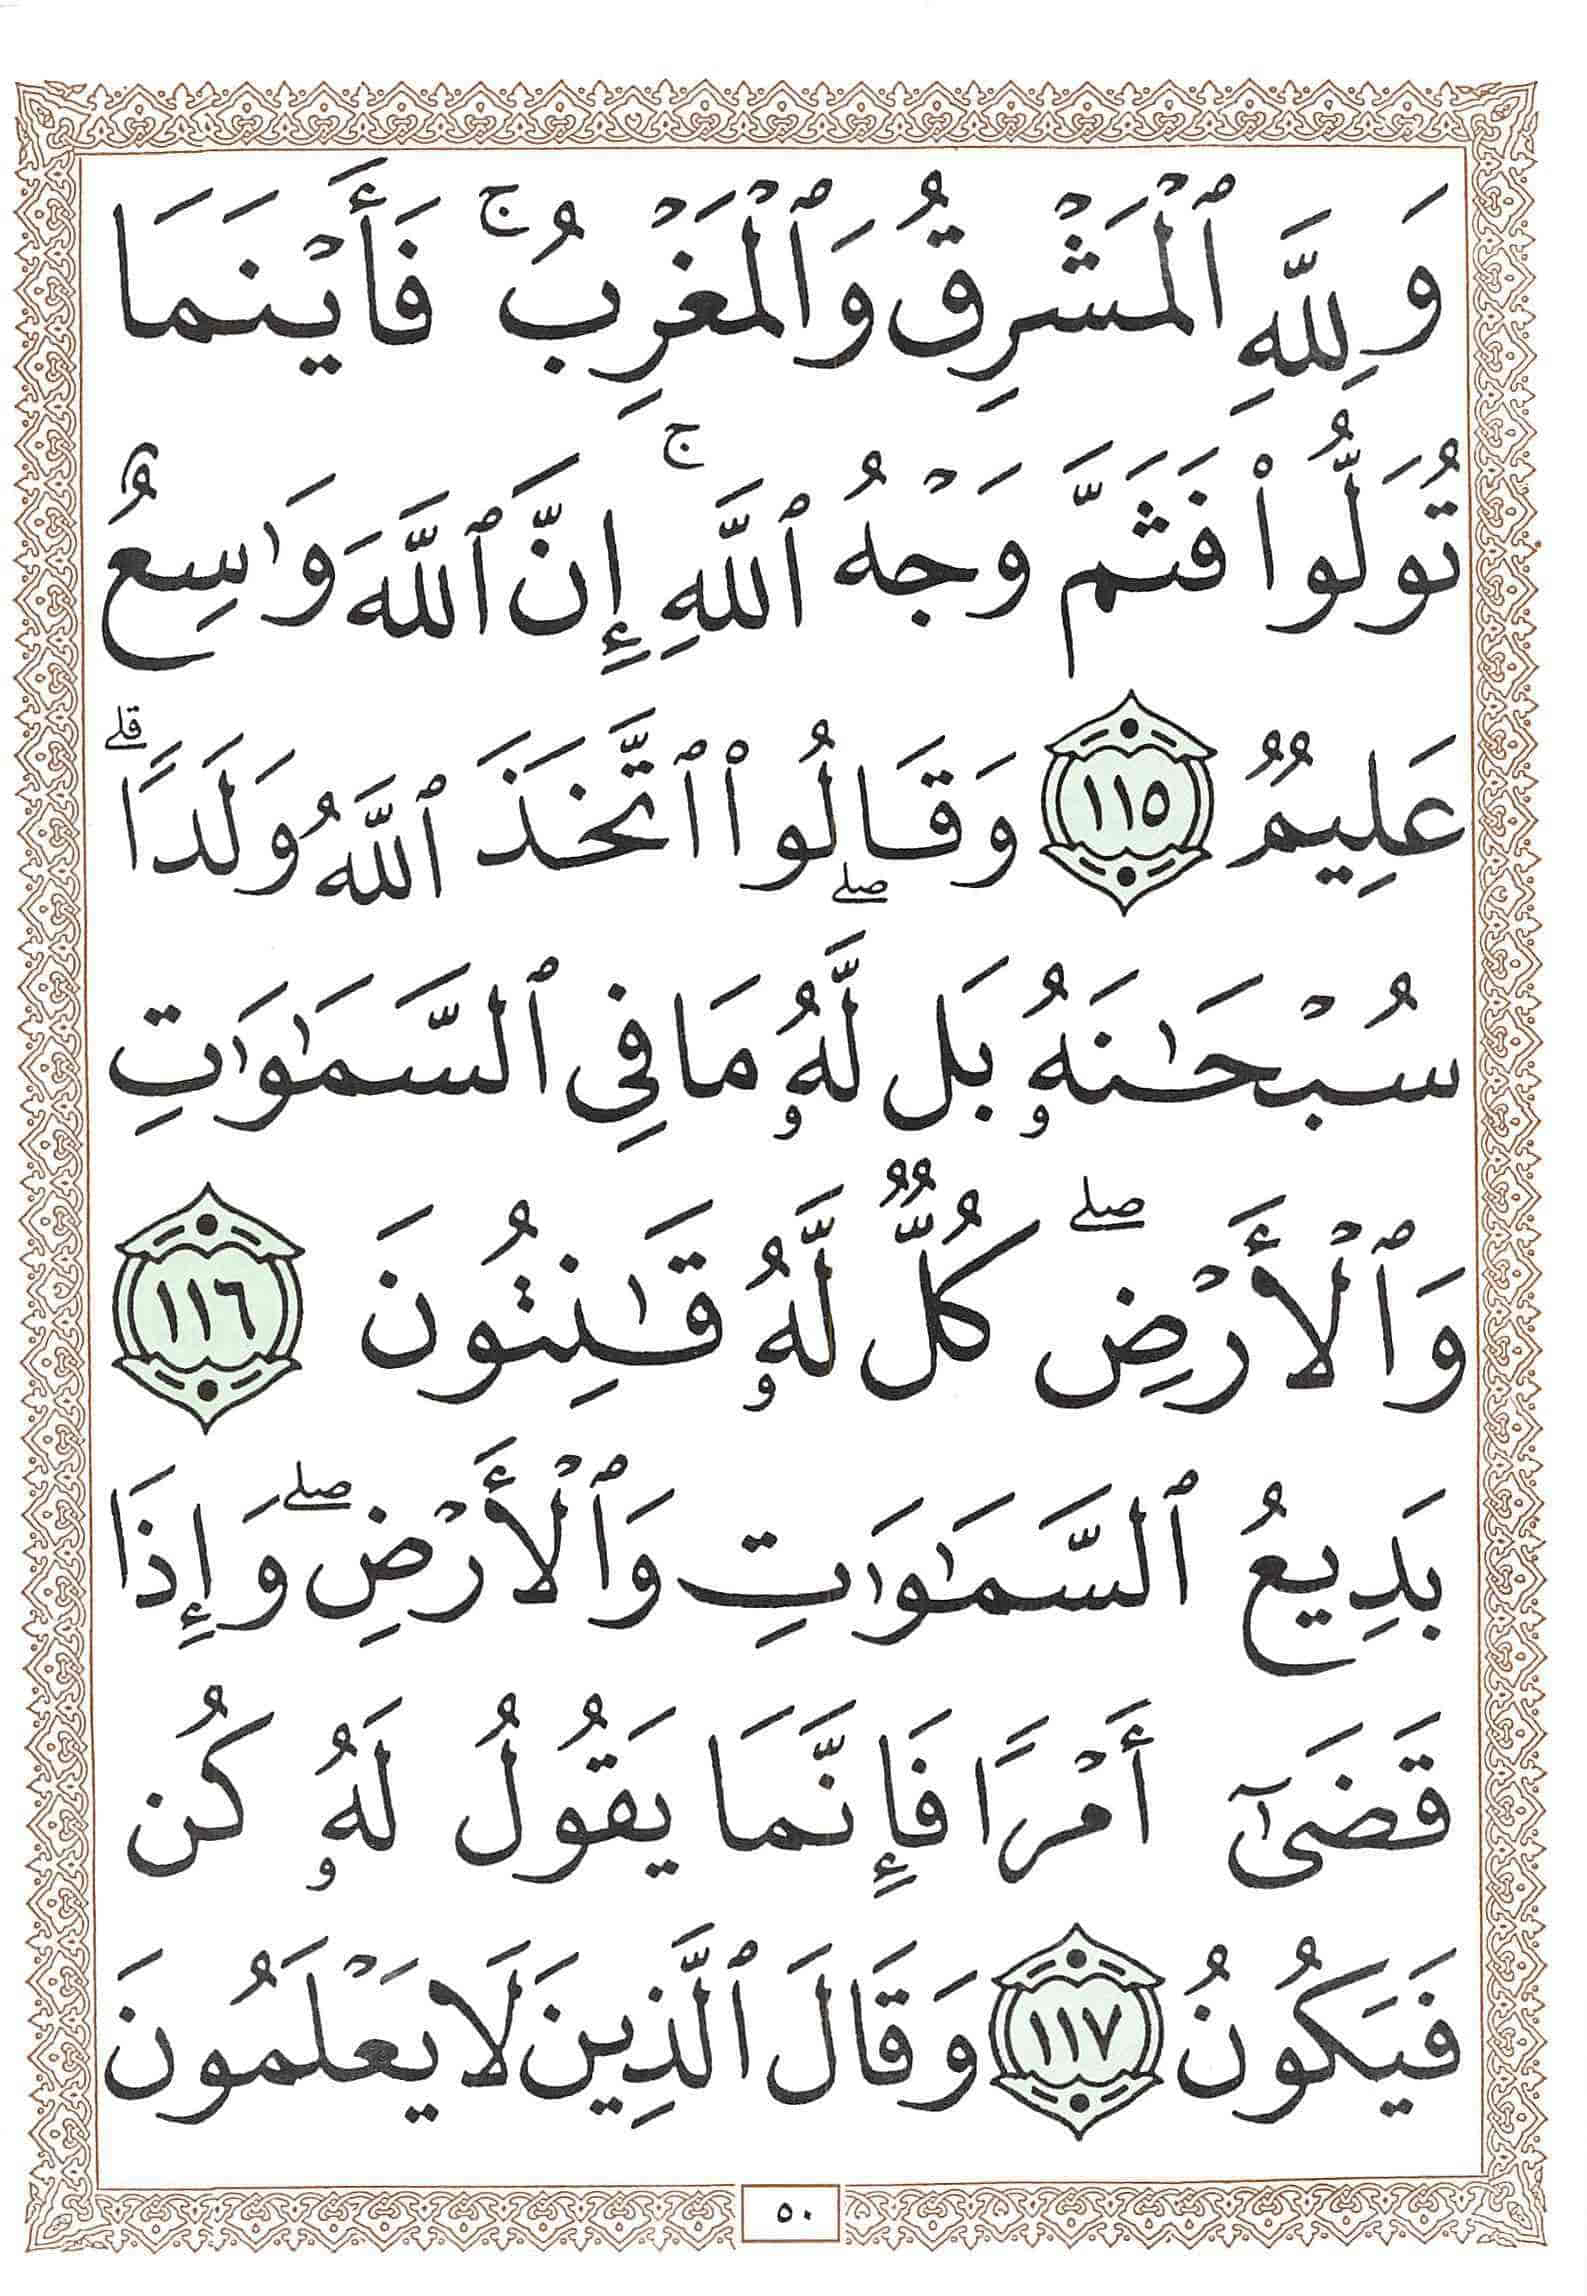 وَلِلَّهِ ٱلْمَشْرِقُ وَٱلْمَغْرِبُ ۚ فَأَيْنَمَا
تُوَلُّوا۟ فَثَمَّ وَجْهُ ٱللَّهِ ۚ إِنَّ ٱللَّهَ وَٰسِعٌ
عَلِيمٌ ١١٥ وَقَالُوا۟ ٱتَّخَذَ ٱللَّهُ وَلَدًا ۗ
سُبْحَٰنَهُۥ ۖ بَل لَّهُۥ مَا فِى ٱلسَّمَٰوَٰتِ
وَٱلْأَرْضِ ۖ كُلٌّ لَّهُۥ قَٰنِتُونَ ١١٦
بَدِيعُ ٱلسَّمَٰوَٰتِ وَٱلْأَرْضِ ۖ وَإِذَا
قَضَىٰٓ أَمْرًا فَإِنَّمَا يَقُولُ لَهُۥ كُن
فَيَكُونُ ١١٧ وَقَالَ ٱلَّذِينَ لَا يَعْلَمُونَ
٥٠